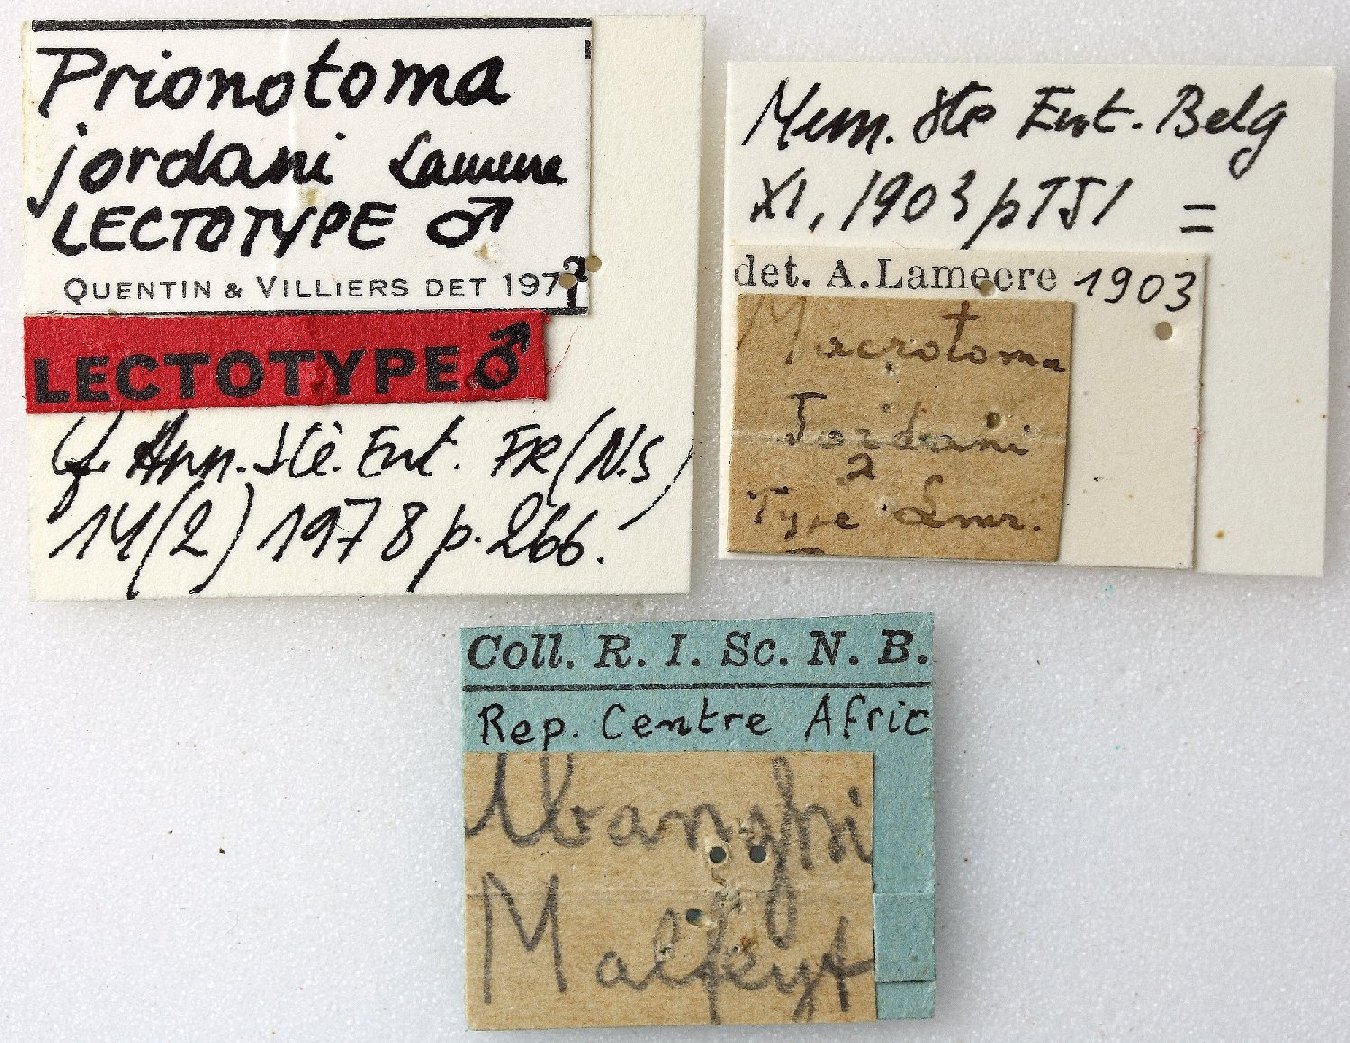 Prionotoma
jordani Lameere
LECTOTYPE ♂
QUENTIN & VILLIERS DET 197
LECTOTYPE ♂
cf. Ann. Sté. Ent. FR (N.S)
14(2) 1978 p. 266.
Mem. Sté Ent. Belg
XI, 1903 p 151 =
det. A. Lameere 1903
Macrotoma
Jordani
Type Lmr.
Coll. R. I. Sc. N. B.
Rep. Centre Afric
Ubanghi
Malfeyt